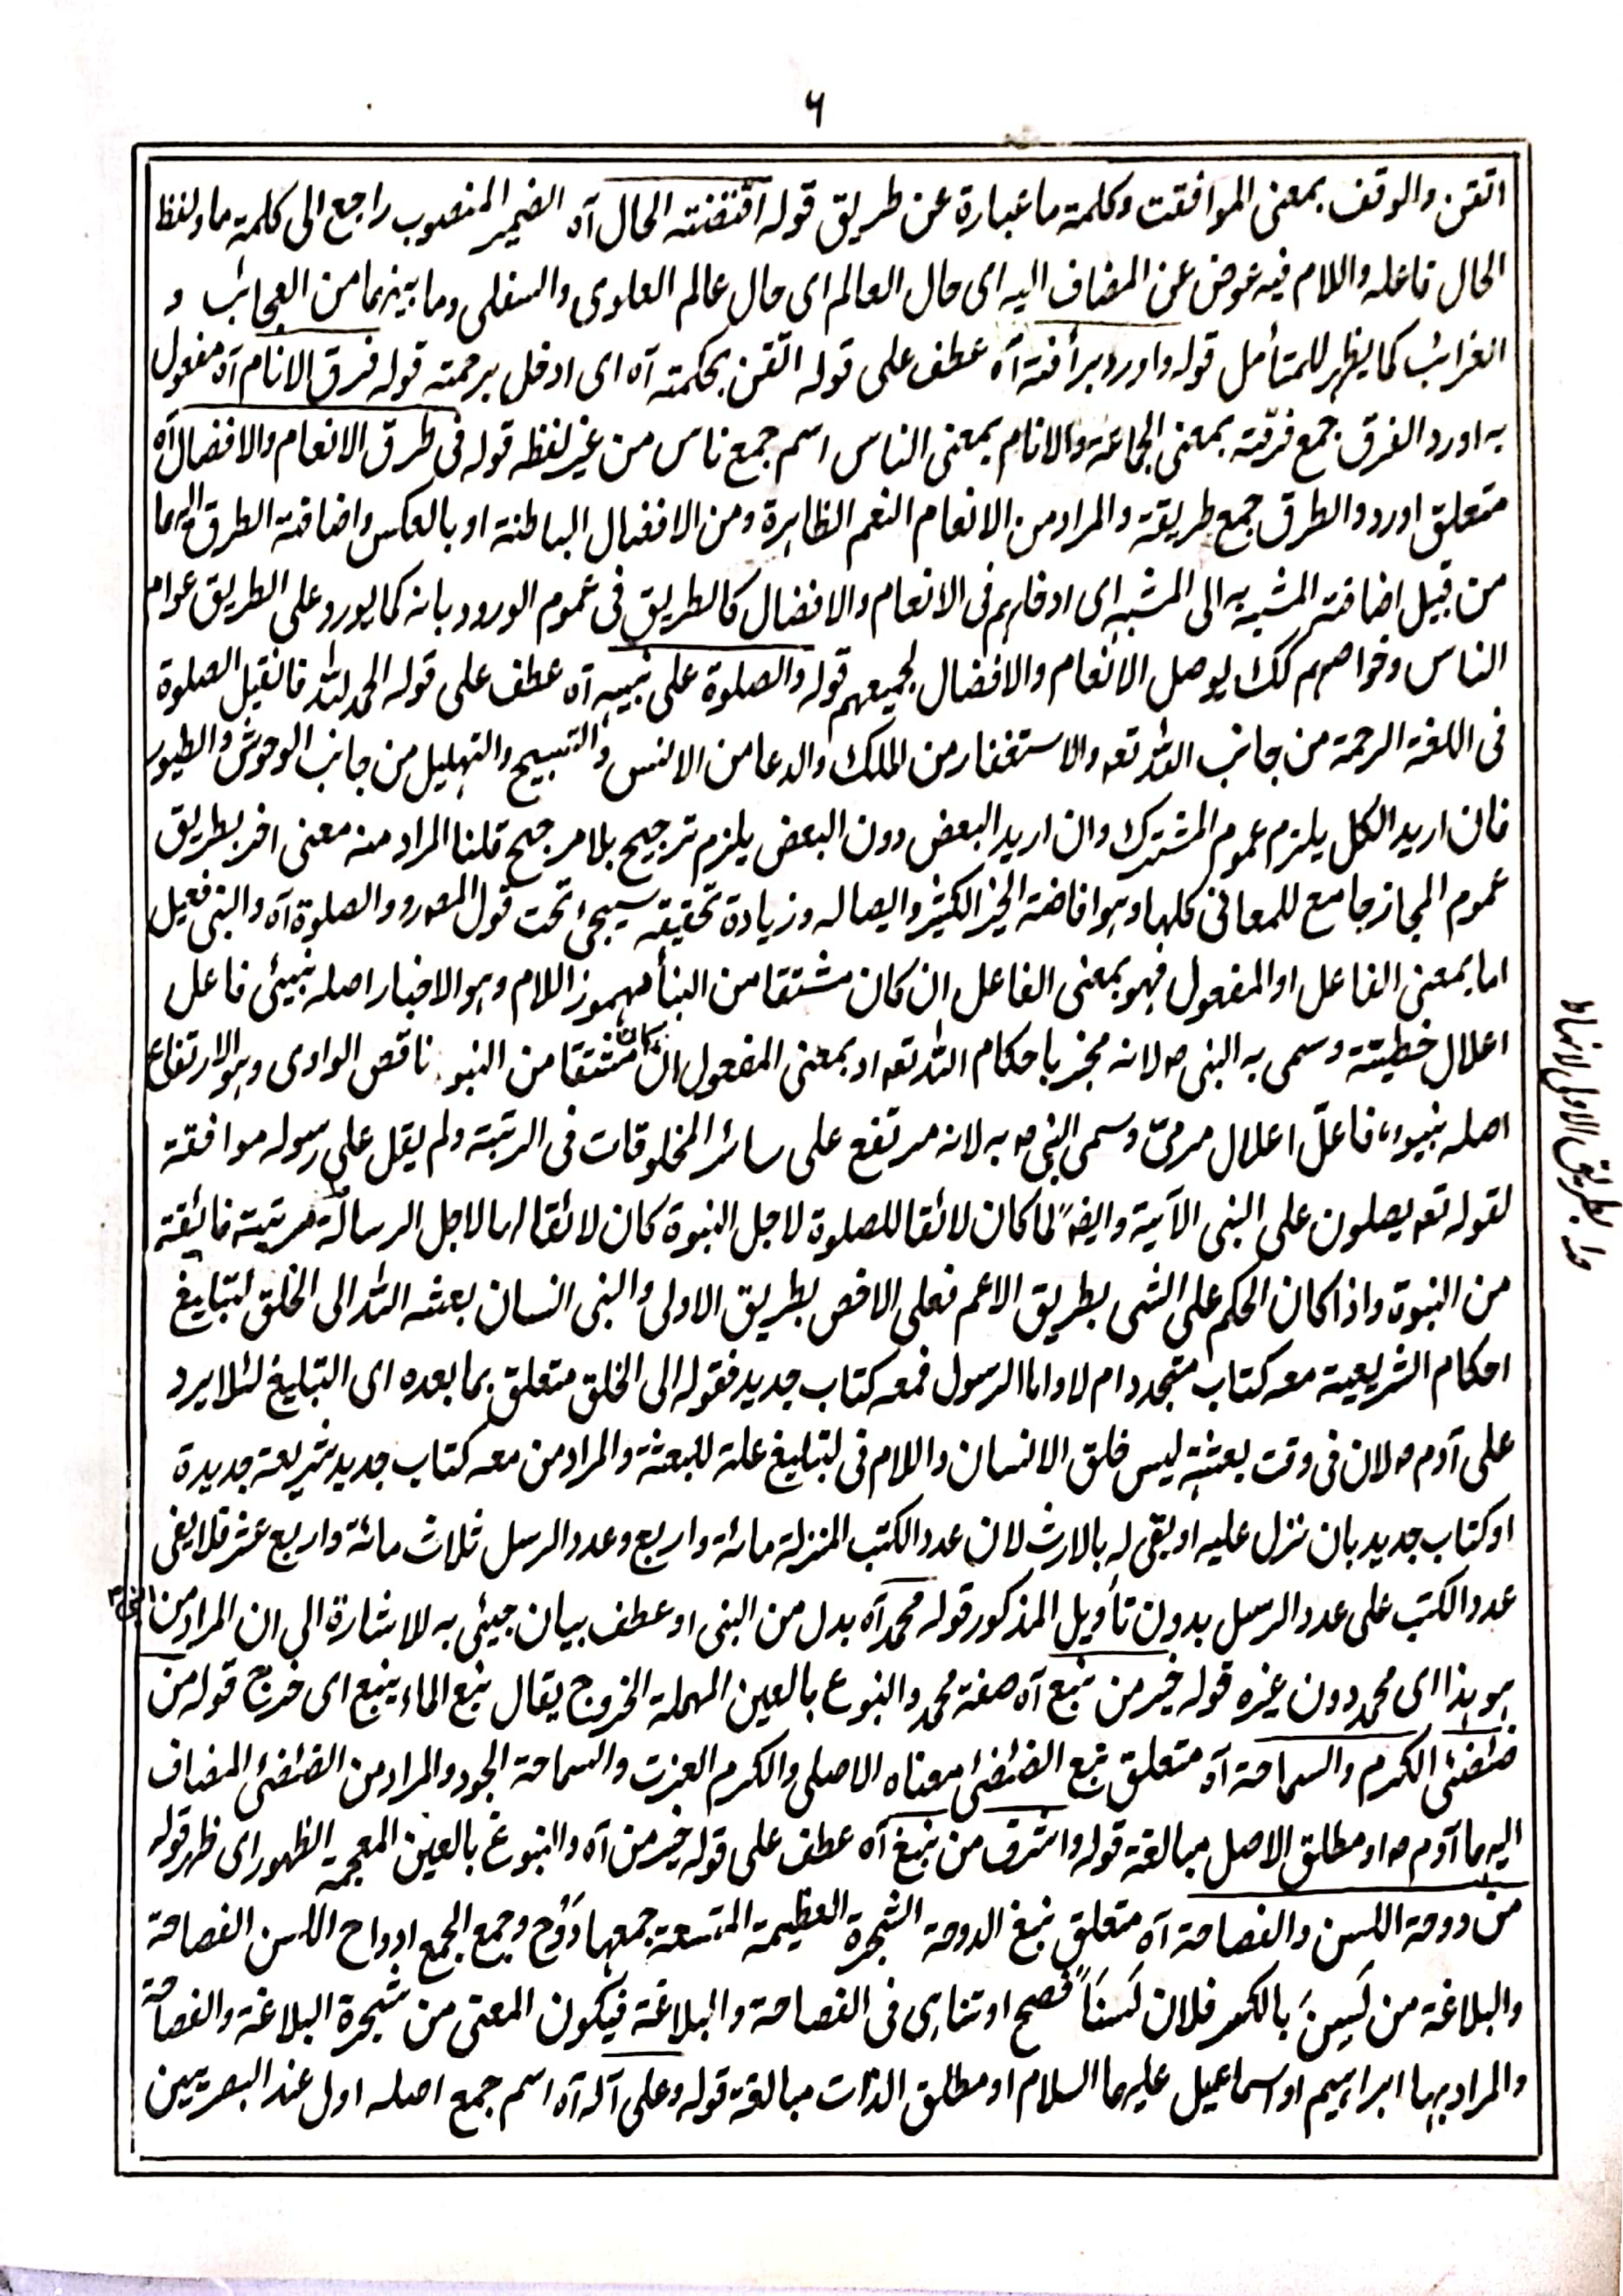 ٦
اتقن والوقف بمعنى الموافقت وكلمة ما عبارة عن طريق قوله اقتضته الحال آه الضمير المنصوب راجع الى كلمة ما ولفظ
الحال فاعله واللام فيه عوض عن المضاف اليه اى حال العالم اى حال عالم العلوى والسفلى وما بينهما من العجائب و
الغرائب كما يظهر للمتأمل قوله واورد برأفته آه عطف على قوله اتقن بحكمته آه اى ادخل برحمته قوله فرق الانام آه مفعول
به اورد الفرق جمع فرقة بمعنى الجماعة والانام بمعنى الناس اسم جمع ناس من غير لفظه قوله فى طرق الانعام والافضال آه
متعلق اورد والطرق جمع طريقة والمراد من الانعام النعم الظاهرة ومن الافضال الباطنة او بالعكس واضافة الطرق اليهما
من قبيل اضافة المشبه به الى المشبه اى ادخلهم فى الانعام والافضال كالطريق فى عموم الورود بانه كما يورد على الطريق عوام
الناس وخواصهم كك يوصل الانعام والافضال لجميعهم قوله والصلوة على نبيه آه عطف على قوله الحمد لله فانقيل الصلوة
فى اللغة الرحمة من جانب الله تعه والاستغفار من الملك والدعا من الانس والتسبيح والتهليل من جانب الوحوش والطيور
فان اريد الكل يلزم عموم المشترك وان اريد البعض دون البعض يلزم ترجيح بلا مرجح قلنا المراد منه معنى اخر بطريق
عموم المجاز جامع للمعانى كلها وهو افاضة الخير الكثير وايصاله وزيادة تحقيقه سيجئ تحت قول المصه و والصلوة آه والنبى فعيل
اما بمعنى الفاعل او المفعول فهو بمعنى الفاعل ان كان مشتقا من النبأ مهموز اللام وهو الاخبار اصله نبيئ فاعل
اعلال خطيئة وسمى به النبى ص لانه مخبر باحكام الله تعه او بمعنى المفعول ان كان مشتقا من النبو ناقص الواوى وهو الارتفاع
اصله نبيو فاعلّ اعلال مرمىّ وسمى النبى ص به لانه مرتفع على سائر المخلوقات فى الرتبة ولم يقل على رسوله موافقة
لقوله تعه يصلون على النبى الآية وايضا لما كان لائقا للصلوة لاجل النبوة كان لائقا لها لاجل الرسالة مرتبة فائقة
من النبوة واذا كان الحكم على الشى بطريق الاعم فعلى الاخص بطريق الاولى والنبى انسان بعثه الله الى الخلق لتبليغ
احكام الشريعية معه كتاب متجدد ام لا واما الرسول فمعه كتاب جديد فقوله الى الخلق متعلق بما بعده اى التبليغ لئلا يرد
على آدم ص لان فى وقت بعثته ليس خلق الانسان واللام فى لتبليغ علة للبعثة والمراد من معه كتاب جديد شريعة جديدة
او كتاب جديد بان نزل عليه او بقى له بالارث لان عدد الكتب المنزلة مائة واربع وعدد الرسل ثلاث مائة واربع عشر فلا يفى
عدد الكتب على عدد الرسل بدون تأويل المذكور قوله محمد آه بدل من النبى او عطف بيان جيئى به للاشارة الى ان المراد من النبى
هو هذا اى محمد دون غيره قوله خير من نبع آه صفة محمد والنبوع بالعين المهملة الخروج يقال نبع الماء ينبع اى خرج قوله من
ضئضئ الكرم والسماحة آه متعلق نبع الضئضئ معناه الاصلى والكرم العزت والسماحة الجود والمراد من الضئضئ المضاف
اليهما آدم ص او مطلق الاصل مبالغة قوله واشرف من نبغ آه عطف على قوله خير من آه والنبوغ بالغين المعجمة الظهور اى ظهر قوله
من دوحة اللسن والفصاحة آه متعلق نبغ الدوحة الشجرة العظيمة المتسعة جمعها دَوْح وجمع الجمع ادواح اللسن الفصاحة
والبلاغة من لَسِنَ بالكسر فلان لَسَنًا فصح او تناهى فى الفصاحة والبلاغة فيكون المعنى من شجرة البلاغة والفصاحة
والمراد بها ابراهيم او اسماعيل عليهما السلام او مطلق الذات مبالغة قوله وعلى آله آه اسم جمع اصله اول عند البصريين